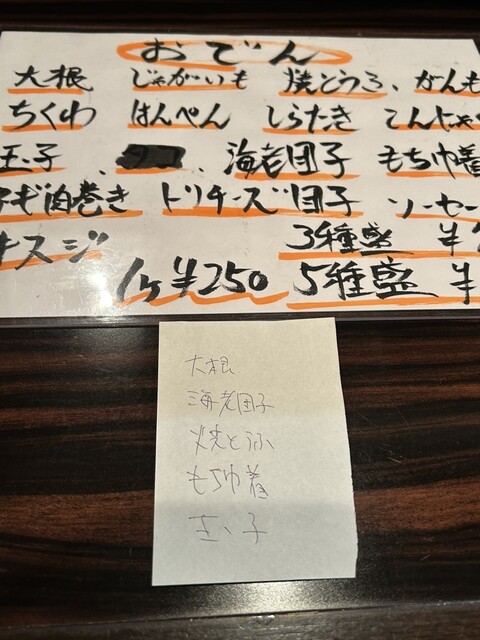 おでん
大根 じゃがいも 焼とうふ、がんも
ちくわ はんぺん しらたき こんにゃ
玉子、 、海老団子 もち巾着
ネギ肉巻き トリチーズ団子 ソーセー
スジ 3種盛 ¥
1ヶ¥250 5種盛 ¥
大根
海老団子
焼とうふ
もち巾着
玉子